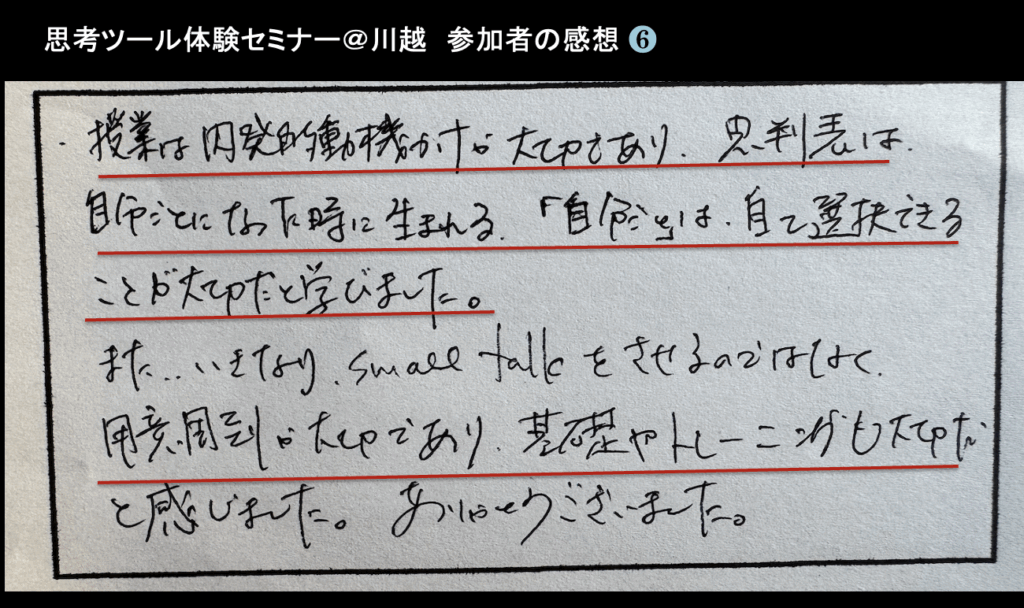 思考ツール体験セミナー@川越 参加者の感想 ❻
・授業は内発的動機づけが大切であり、思・判・表は、
自分ごとになった時に生まれる。「自分ごと」は、自で選択できる
ことが大切だと学びました。
また、いきなり、small talkをさせるのではなく、
用意周到が大切であり、基礎やトレーニングも大切だ
と感じました。ありがとうございました。